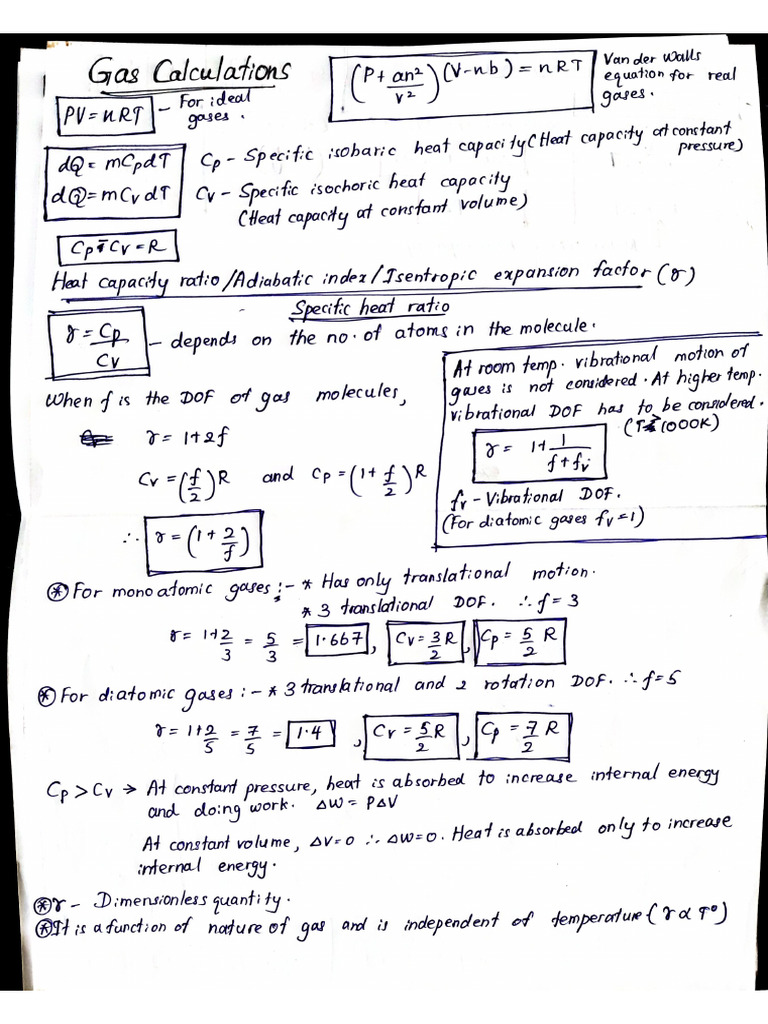 Gas Calculations
(P + an²/v²)(V-nb) = nRT
Van der Walls
equation for real
gases.
PV = nRT - For ideal
gases.
dQ = mCpdT
dQ = mCvdT
Cp - Specific isobaric heat capacity (Heat capacity at constant
pressure)
Cv - Specific isochoric heat capacity
(Heat capacity at constant volume)
Cp - Cv = R
Heat capacity ratio/Adiabatic index/Isentropic expansion factor (γ)
Specific heat ratio
γ = Cp/Cv - depends on the no. of atoms in the molecule.
When f is the DOF of gas molecules,
γ = 1+2f
Cv = (f/2)R and Cp = (1 + f/2)R
∴ γ = (1 + 2/f)
At room temp. vibrational motion of
gases is not considered. At higher temp.
vibrational DOF has to be considered.
(T>1000K)
γ = 1 + 1/(f + fv)
fv - Vibrational DOF.
(For diatomic gases fv = 1)
⊛ For monoatomic gases :- * Has only translational motion.
* 3 translational DOF. ∴ f = 3
γ = 1+2/3 = 5/3 = 1.667, Cv = 3/2 R, Cp = 5/2 R
⊛ For diatomic gases :- * 3 translational and 2 rotation DOF. ∴ f = 5
γ = 1+2/5 = 7/5 = 1.4, Cv = 5/2 R, Cp = 7/2 R
Cp > Cv → At constant pressure, heat is absorbed to increase internal energy
and doing work. ΔW = PΔV
At constant volume, ΔV=0 ∴ ΔW=0. Heat is absorbed only to increase
internal energy.
⊛ γ - Dimensionless quantity.
⊛ It is a function of nature of gas and is independent of temperature (γ α T⁰)